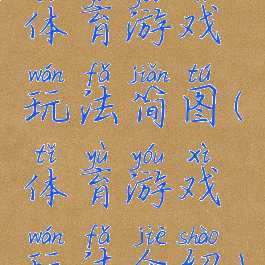 体育游戏
wán fǎ jiǎn tú
玩法简图(
tǐ yù yóu xì
体育游戏
wán fǎ jiè shào
玩法介绍)